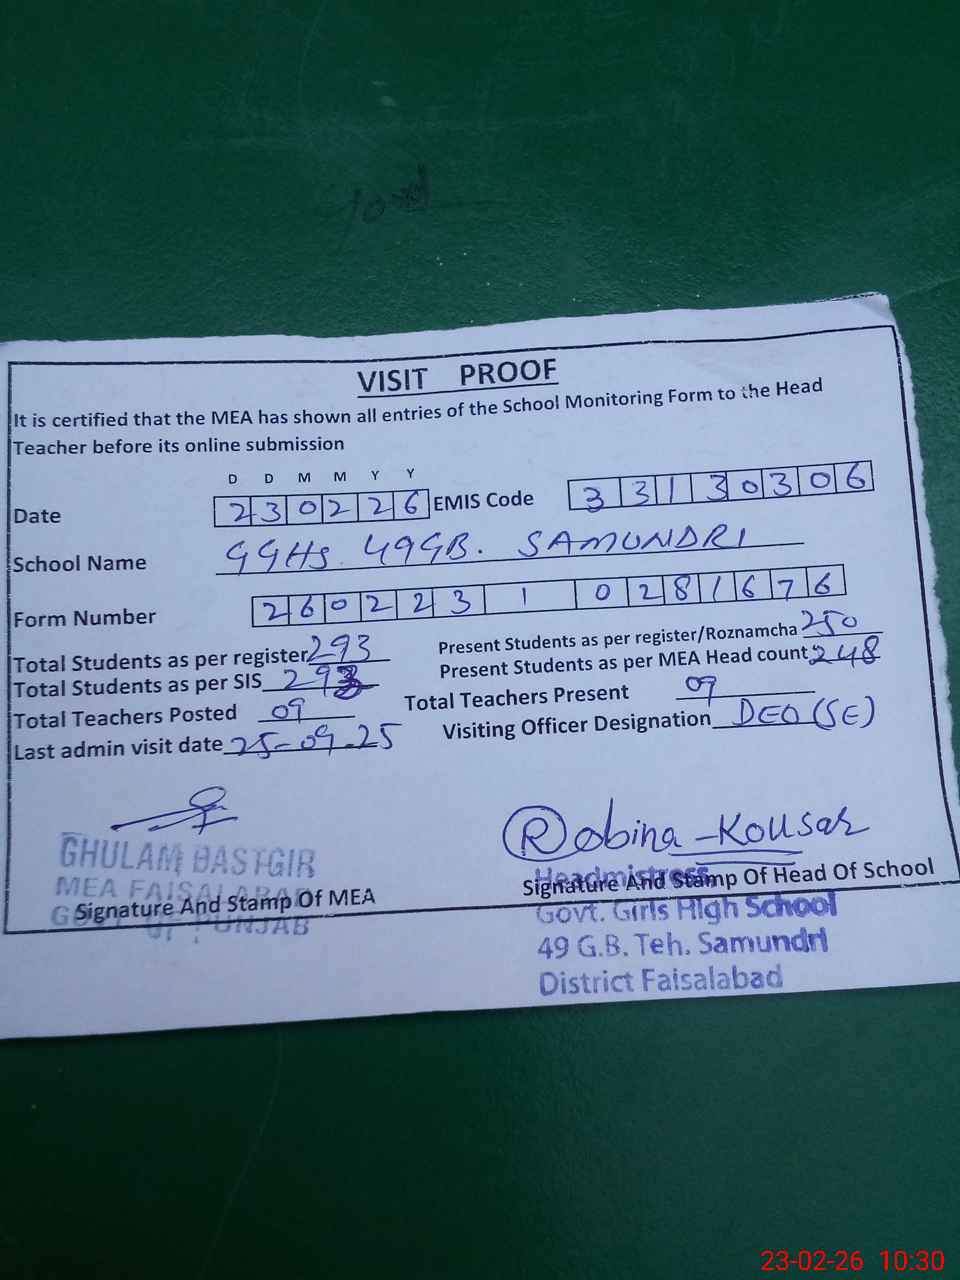 VISIT PROOF
It is certified that the MEA has shown all entries of the School Monitoring Form to the Head
Teacher before its online submission
D D M M Y Y
Date 230226 EMIS Code 33130306
School Name GGHS. 49GB. SAMUNDRI
Form Number 260223 1 0281676
Total Students as per register 293 Present Students as per register/Roznamcha 250
Total Students as per SIS 293 Present Students as per MEA Head count 248
Total Teachers Posted 09 Total Teachers Present 09
Last admin visit date 25-09-25 Visiting Officer Designation DEO (SE)
Robina-Kousar
GHULAM DASTGIR
MEA FAISALABAD
GOVT OF PUNJAB
Signature And Stamp Of MEA
Headmistress
Signature And Stamp Of Head Of School
Govt. Girls High School
49 G.B. Teh. Samundri
District Faisalabad
23-02-26 10:30